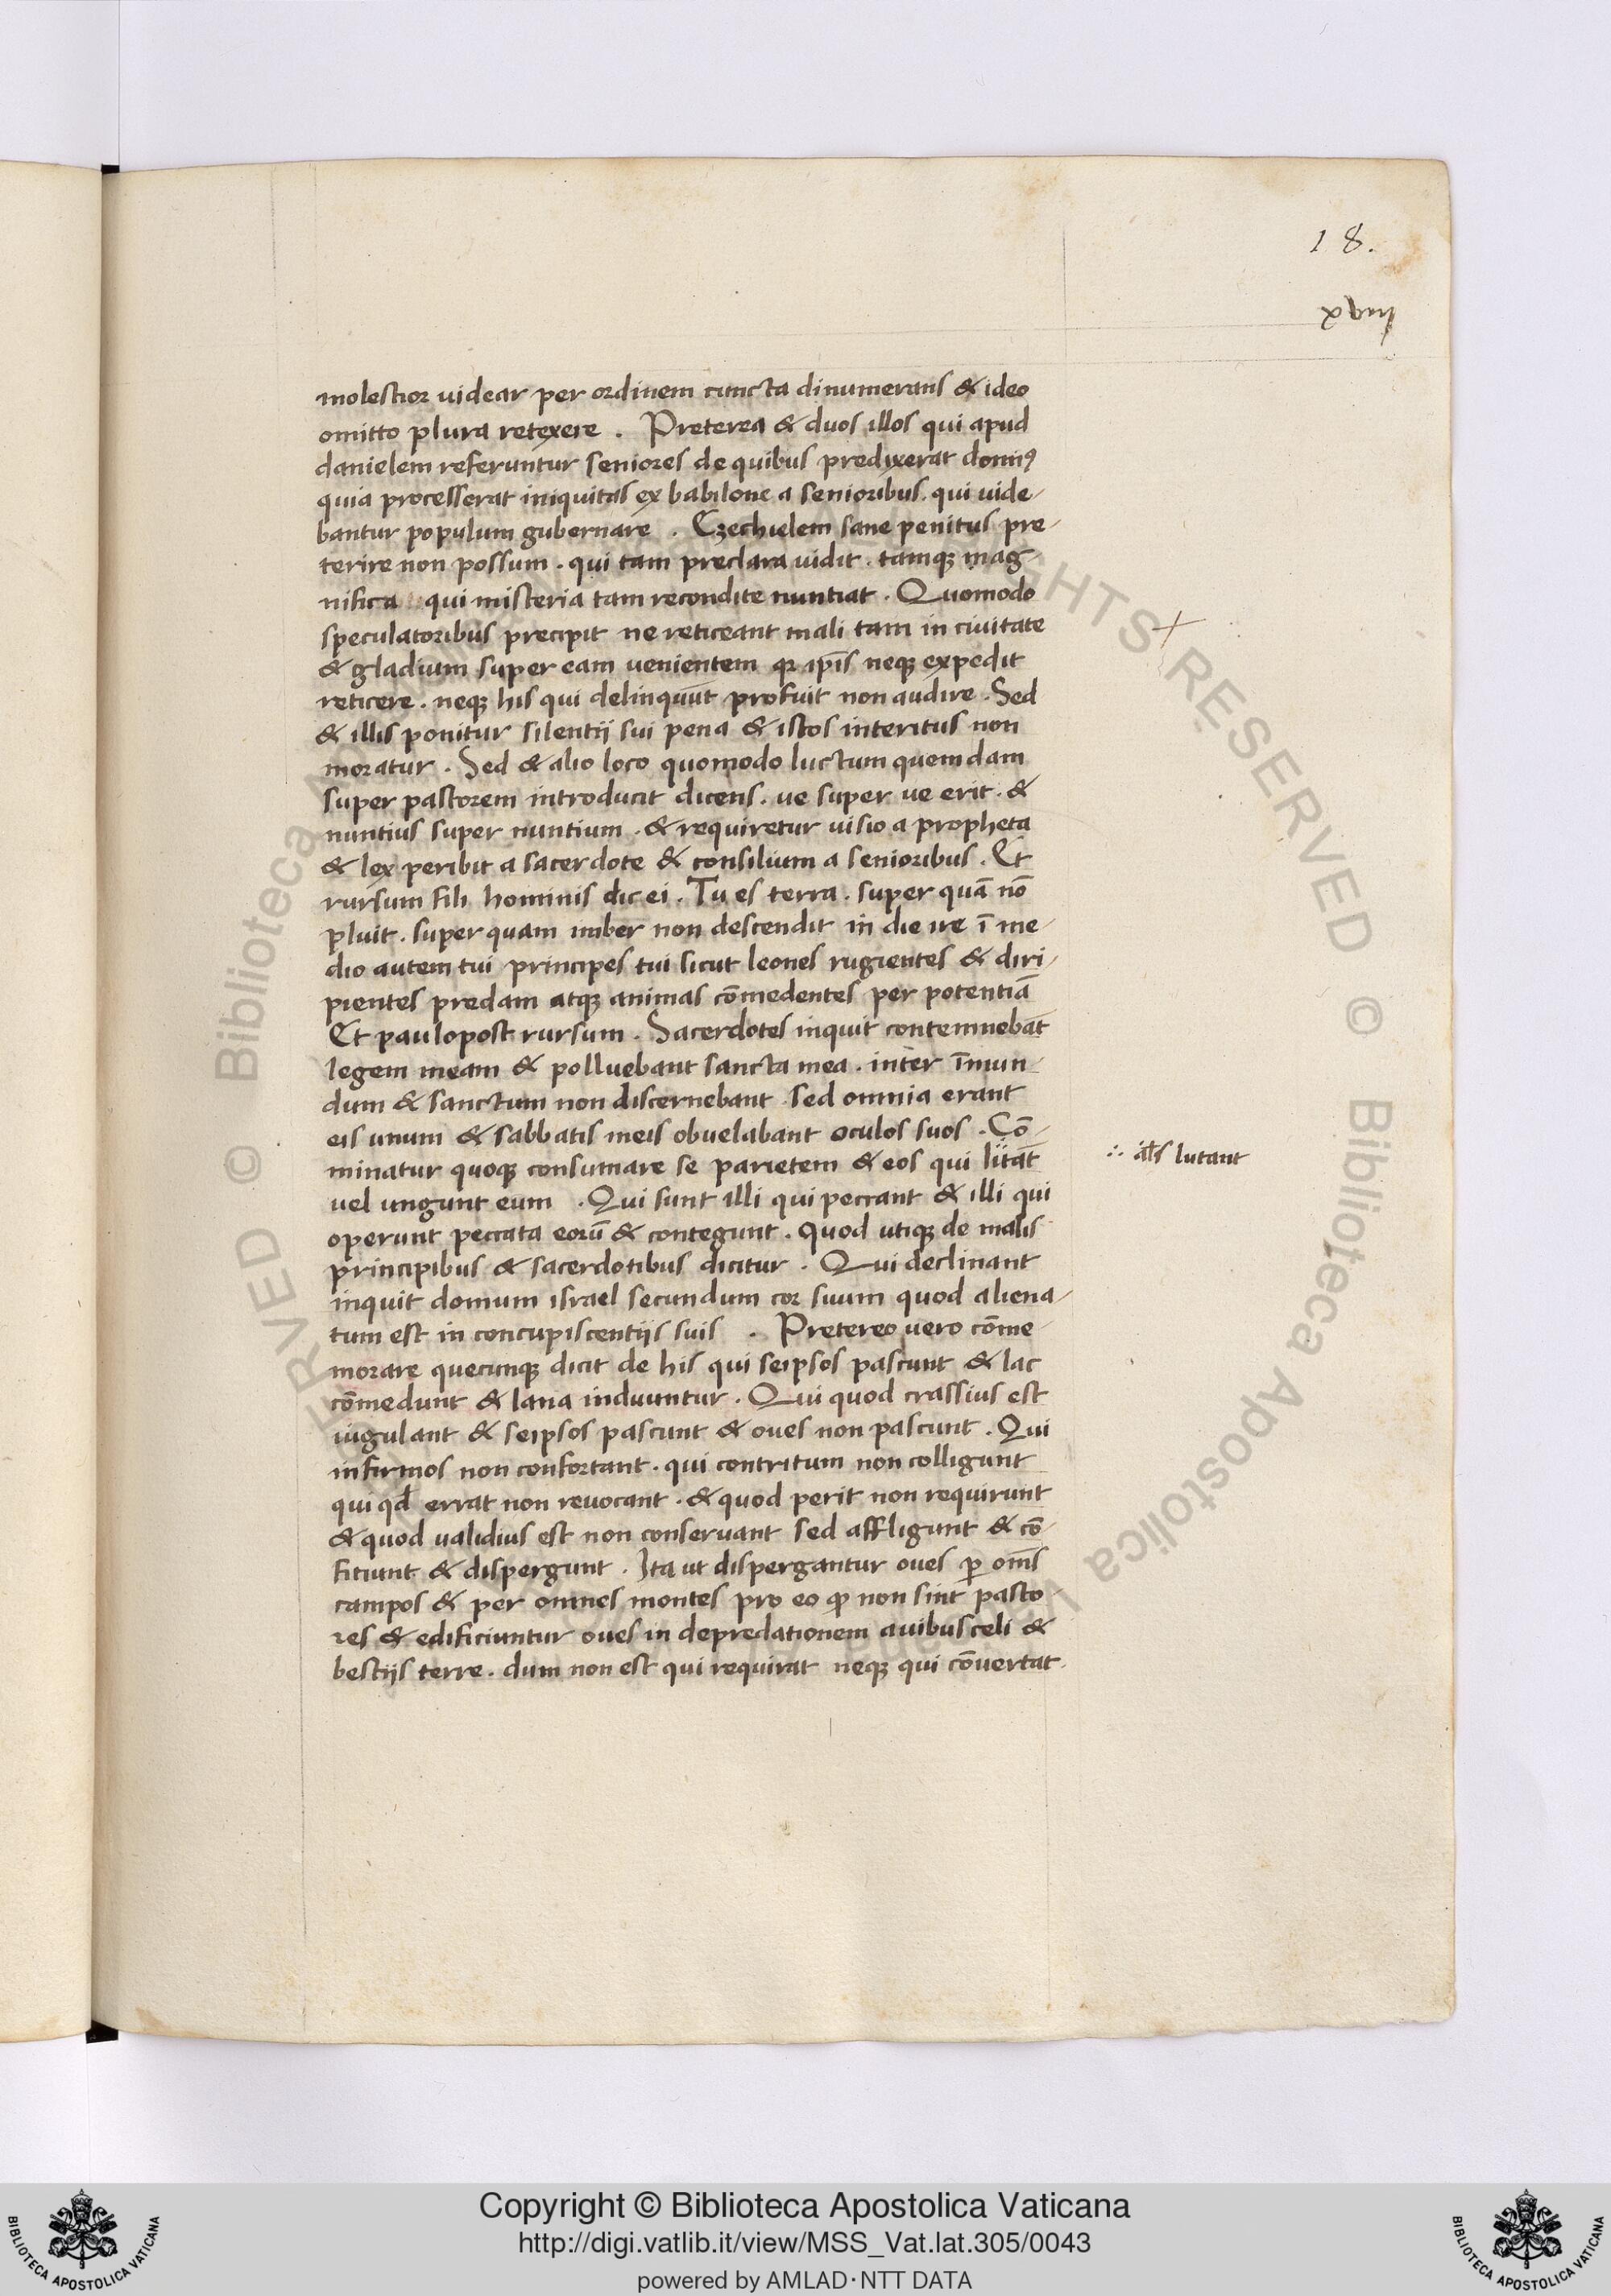 18.
xviij
molestior videar per ordinem cuncta dinumerans & ideo
omitto plura retexere . Preterea & duos illos qui apud
danielem referuntur seniores de quibus predixerat domin9
quia processerat iniquitas ex babilone a senioribus . qui vide-
bantur populum gubernare . Ezechielem sane penitus pre-
terire non possum . qui tam preclara vidit . tamqꝫ mag-
nifica qui misteria tam recondite nuntiat . Quomodo
speculatoribus precipit ne reticeant mali tam in civitate
& gladium super eam venientem qꝛ ip̄is neqꝫ expedit
reticere . neqꝫ his qui delinquūt profuit non audire . Sed
& illis ponitur silentij sui pena & istos interitus non
moratur . Sed & alio loco quomodo luctum quemdam
super pastorem introducit dicens . ve super ve erit . &
nuntius super nuntium . & requiretur visio a propheta
& lex peribit a sacerdote & consilium a senioribus . Et
rursum fili hominis dic ei . Tu es terra . super quā nō
pluit . super quam imber non descendit in die ire ī me-
dio autem tui principes tui sicut leones rugientes & diri-
pientes predam atqꝫ animas cōmedentes per potentiā
Et paulopost rursum . Sacerdotes inquit contemnebāt
legem meam & polluebant sancta mea . inter īmun-
dum & sanctum non discernebant . sed omnia erant
eis unum & sabbatis meis obvelabant oculos suos . Cō-
minatur quoqꝫ consumare se parietem & eos qui litāt
vel ungunt eum . Qui sunt illi qui peccant & illi qui
operunt peccata eorū & contegunt . Quod utiqꝫ de malis
principibus & sacerdotibus dicitur . Qui declinant
inquit domum israel secundum cor suum quod aliena-
tum est in concupiscentijs suis . Pretereo vero cōme-
morare quecunqꝫ dicit de his qui seipsos pascunt & lac
cōmedunt & lana induuntur . Qui quod crassius est
iugulant & seipsos pascunt & oves non pascunt . Qui
infirmos non confortant . qui contritum non colligunt
qui qd̄ errat non revocant . & quod perit non requirunt
& quod validius est non conservant sed affligunt & cō-
ficiunt & dispergunt . Ita ut dispergantur oves ꝑ om̄s
campos & per omnes montes pro eo ꝙ non sint pasto-
res & edificiuntur oves in depredationem avibus celi &
bestijs terre . dum non est qui requirat neqꝫ qui cōvertat .
∴ al̄s lutant
Copyright © Biblioteca Apostolica Vaticana
http://digi.vatlib.it/view/MSS_Vat.lat.305/0043
powered by AMLAD·NTT DATA
BIBLIOTECA APOSTOLICA VATICANA
BIBLIOTECA APOSTOLICA VATICANA